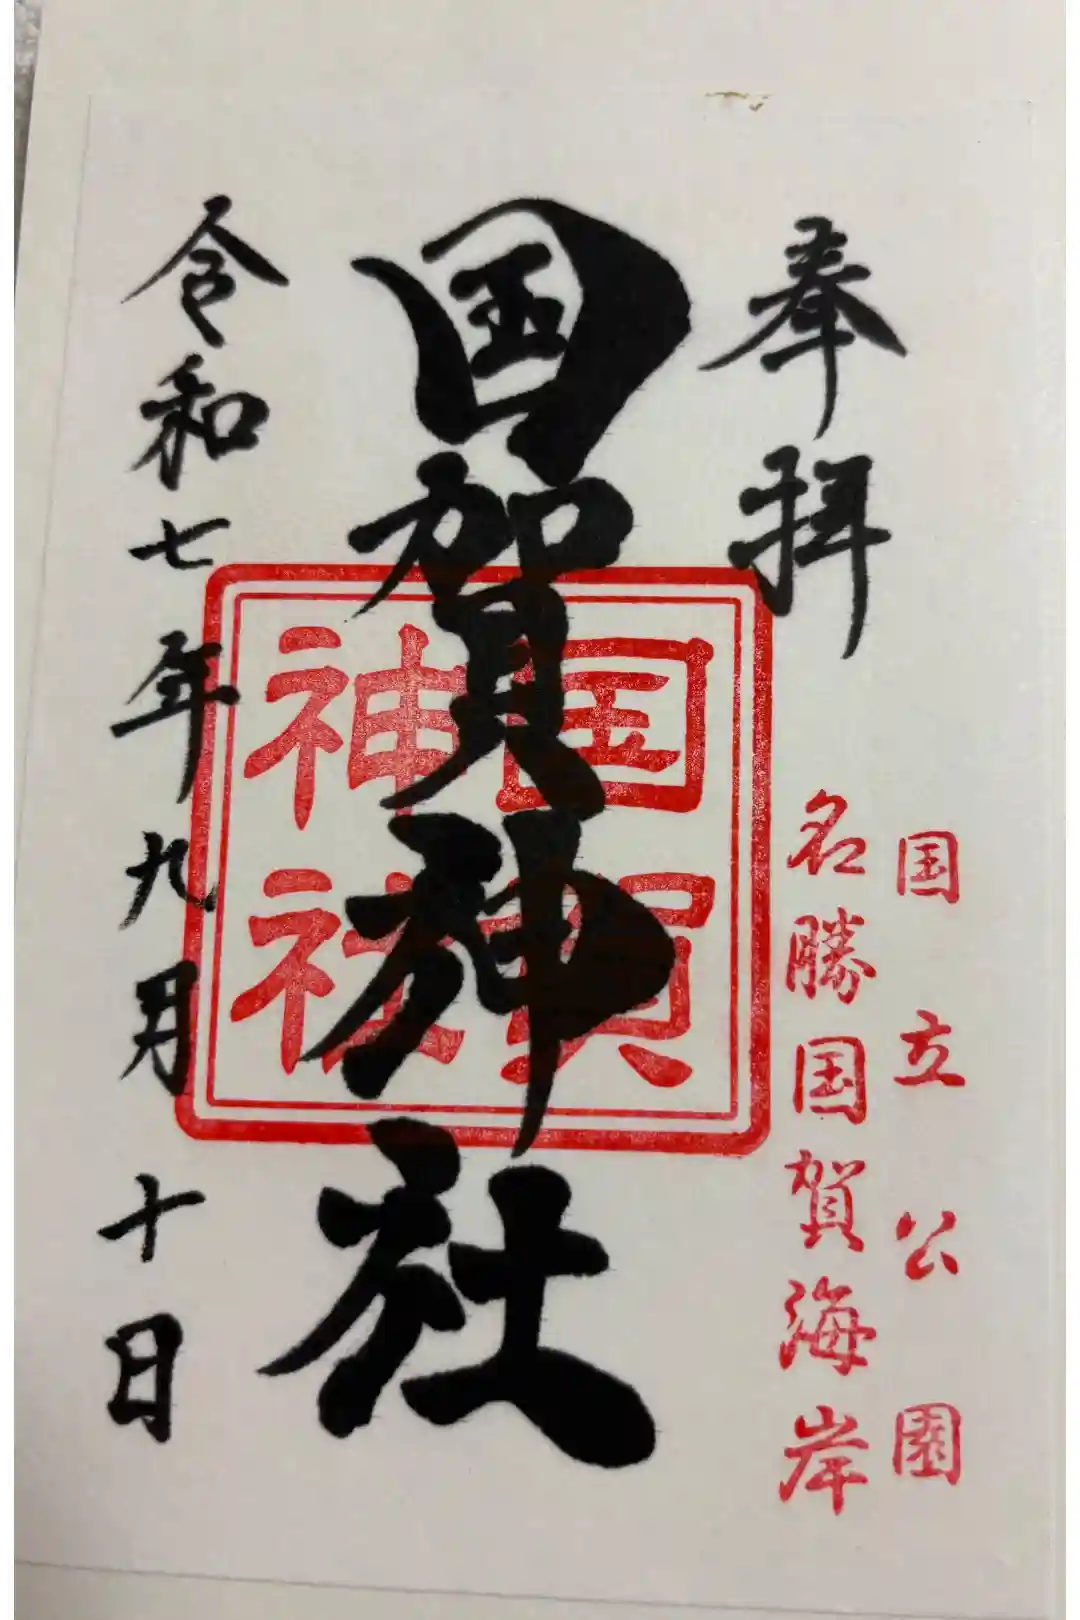 奉拝
国立公園
名勝国賀海岸
国賀神社
国賀
神社
令和七年九月十日